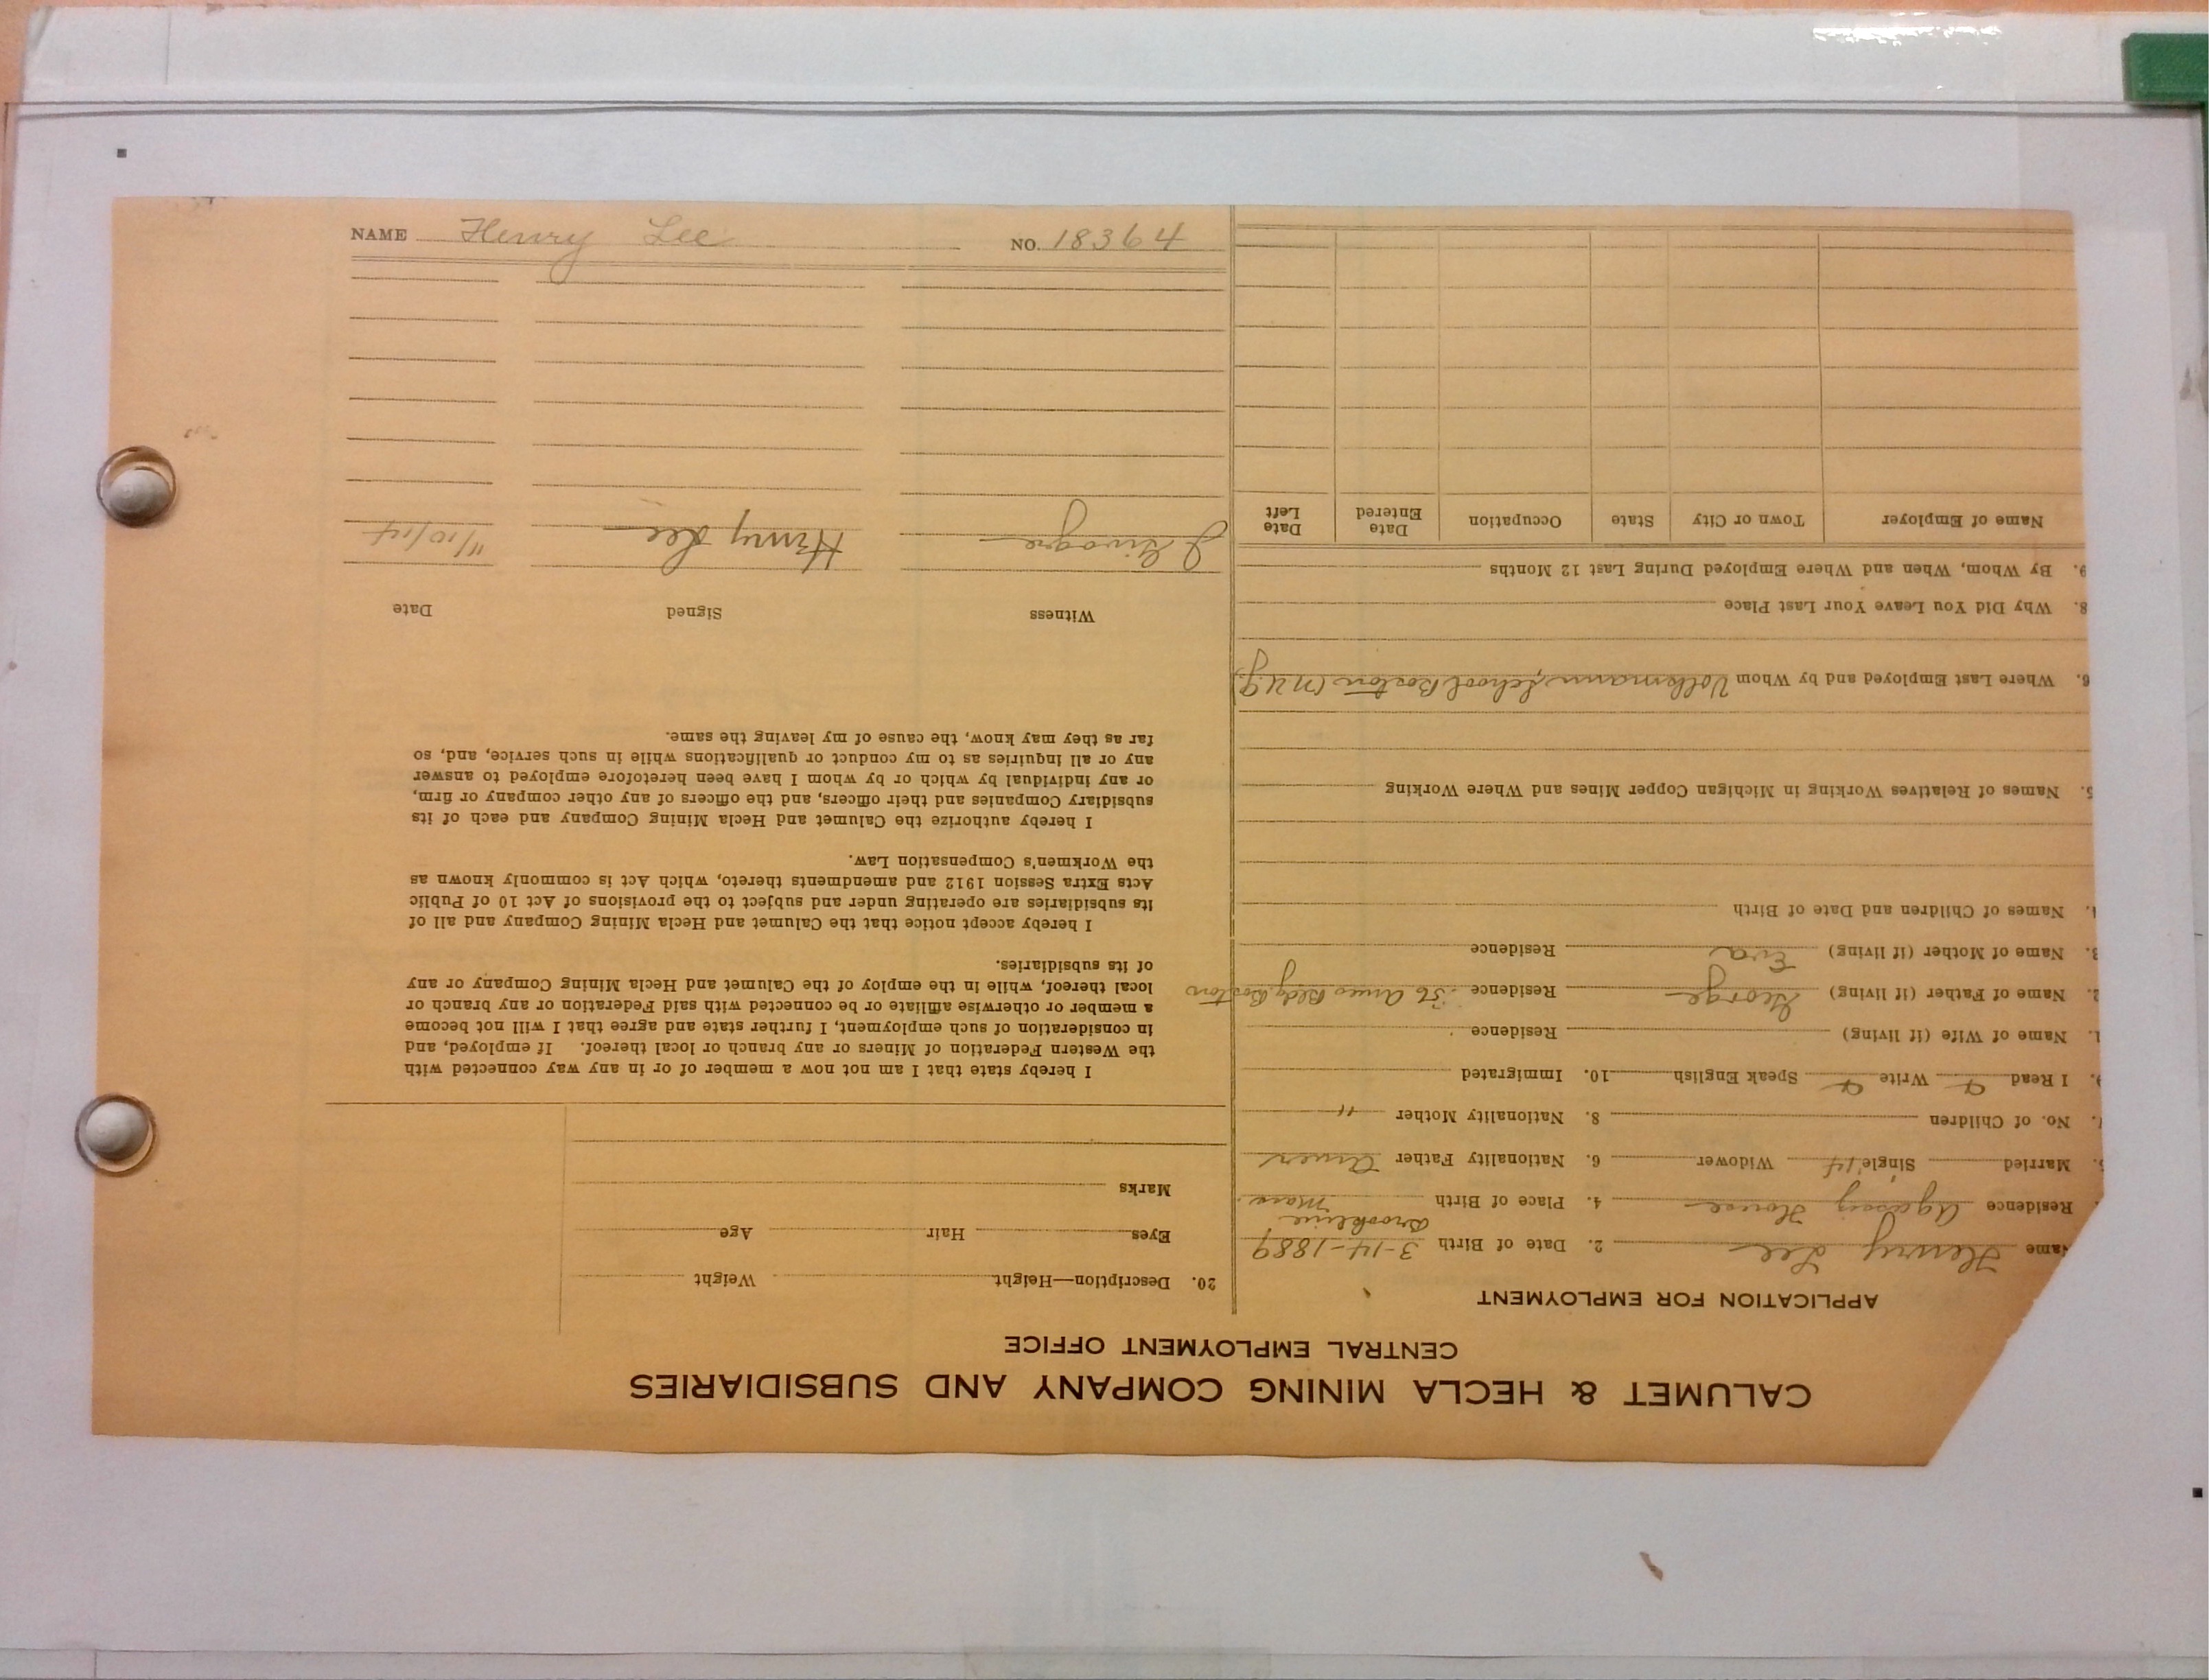 NAME Henry Lee NO. 18364
CALUMET & HECLA MINING COMPANY AND SUBSIDIARIES
CENTRAL EMPLOYMENT OFFICE
APPLICATION FOR EMPLOYMENT
Name Henry Lee 2. Date of Birth 3-14-1889
Brookline
Residence Agassiz House 4. Place of Birth Mass.
5. Married Single Widower 6. Nationality Father Amer
7. No. of Children 8. Nationality Mother "
9. I Read Write Speak English 10. Immigrated
1. Name of Wife (if living) Residence
2. Name of Father (if living) George Residence 56 Ames Bldg Boston
3. Name of Mother (if living) Eva Residence
4. Names of Children and Date of Birth
5. Names of Relatives Working in Michigan Copper Mines and Where Working
6. Where Last Employed and by Whom Volkmann School Boston
8. Why Did You Leave Your Last Place
9. By Whom, When and Where Employed During Last 12 Months
Name of Employer Town or City State Occupation Date Entered Date Left
20. Description—Height Weight
Eyes Hair Age
Marks
I hereby state that I am not now a member of or in any way connected with
the Western Federation of Miners or any branch or local thereof. If employed, and
in consideration of such employment, I further state and agree that I will not become
a member or otherwise affiliate or be connected with said Federation or any branch or
local thereof, while in the employ of the Calumet and Hecla Mining Company or any
of its subsidiaries.
I hereby accept notice that the Calumet and Hecla Mining Company and all of
its subsidiaries are operating under and subject to the provisions of Act 10 of Public
Acts Extra Session 1912 and amendments thereto, which Act is commonly known as
the Workmen's Compensation Law.
I hereby authorize the Calumet and Hecla Mining Company and each of its
subsidiary Companies and their officers, and the officers of any other company or firm,
or any individual by which or by whom I have been heretofore employed to answer
any or all inquiries as to my conduct or qualifications while in such service, and, so
far as they may know, the cause of my leaving the same.
Witness Signed Date
Henry Lee 11/10/14